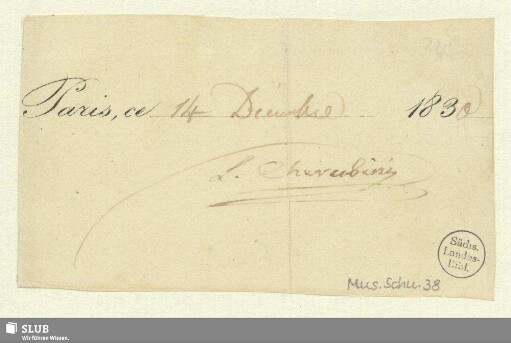 Paris, ce 14 Décembre 1830
L. Cherubini
Sächs.
Landes-
Bibl.
Mus.Schu.38
SLUB
Wir führen Wissen.